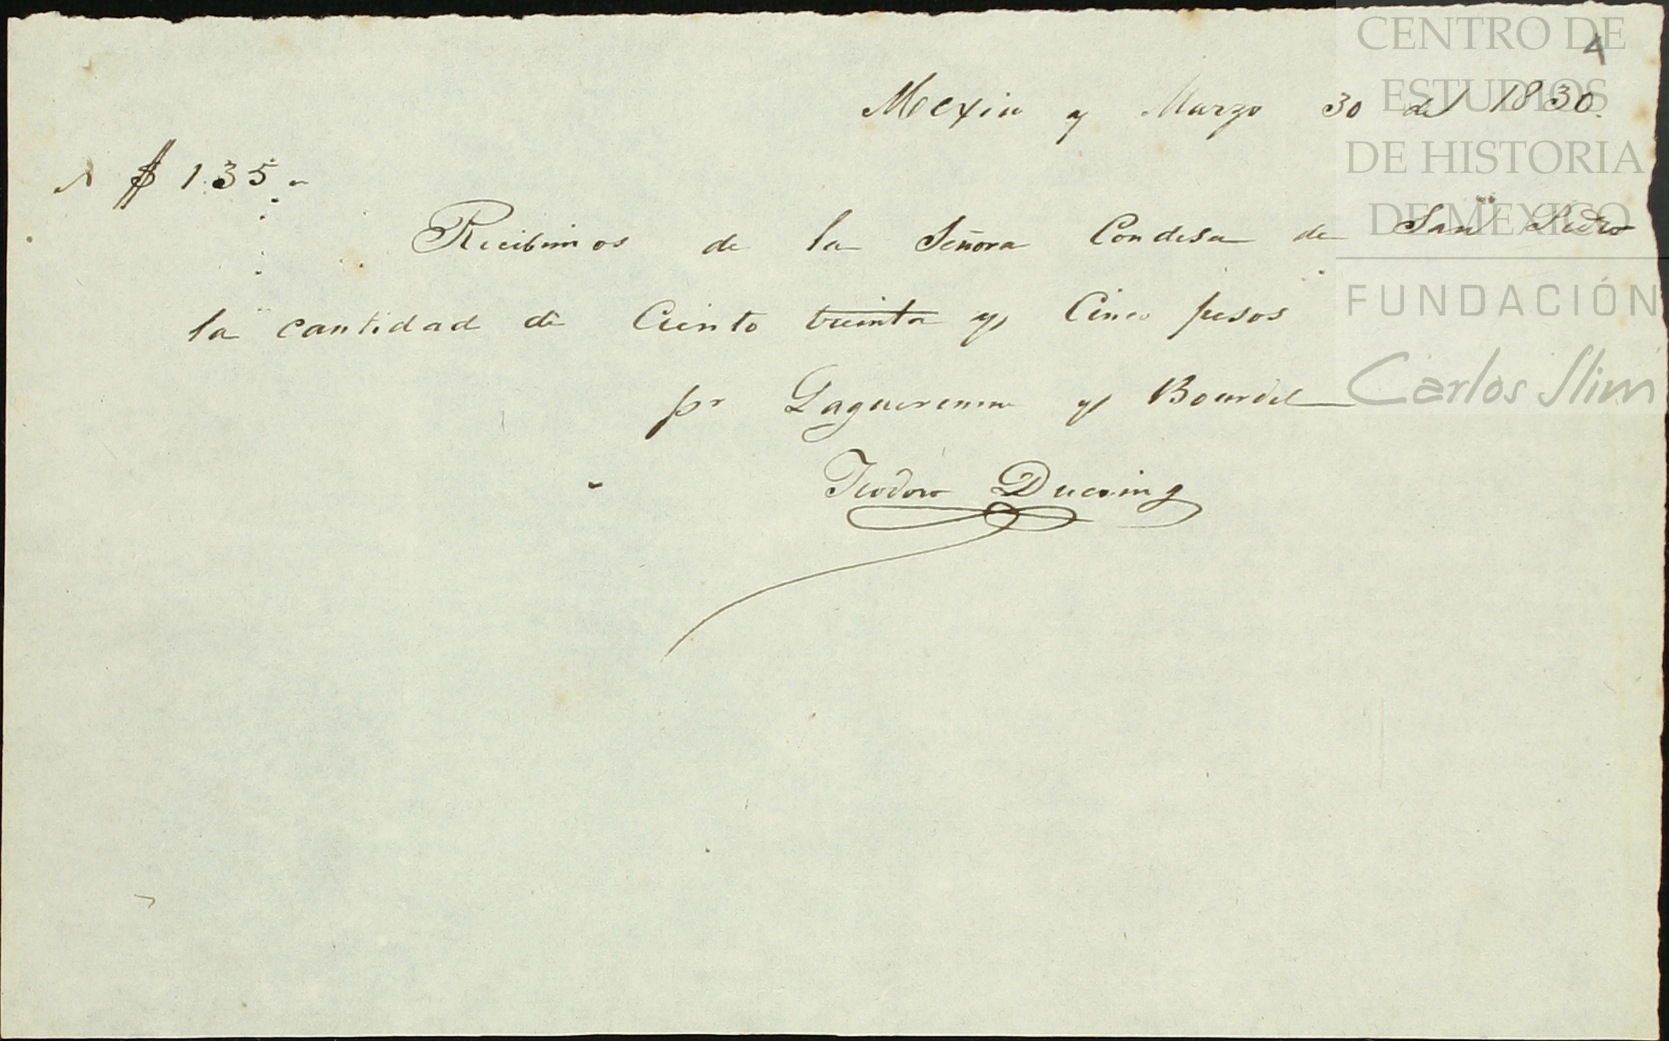 4
Mexico y Marzo 30 de 1830.
$ 135.
Recibimos de la Señora Condesa de San Pedro
la cantidad de Ciento treinta y Cinco pesos
pr Laguerenne y Bourdel
Teodoro Ducoing
CENTRO DE
ESTUDIOS
DE HISTORIA
DE MEXICO
FUNDACIÓN
Carlos Slim